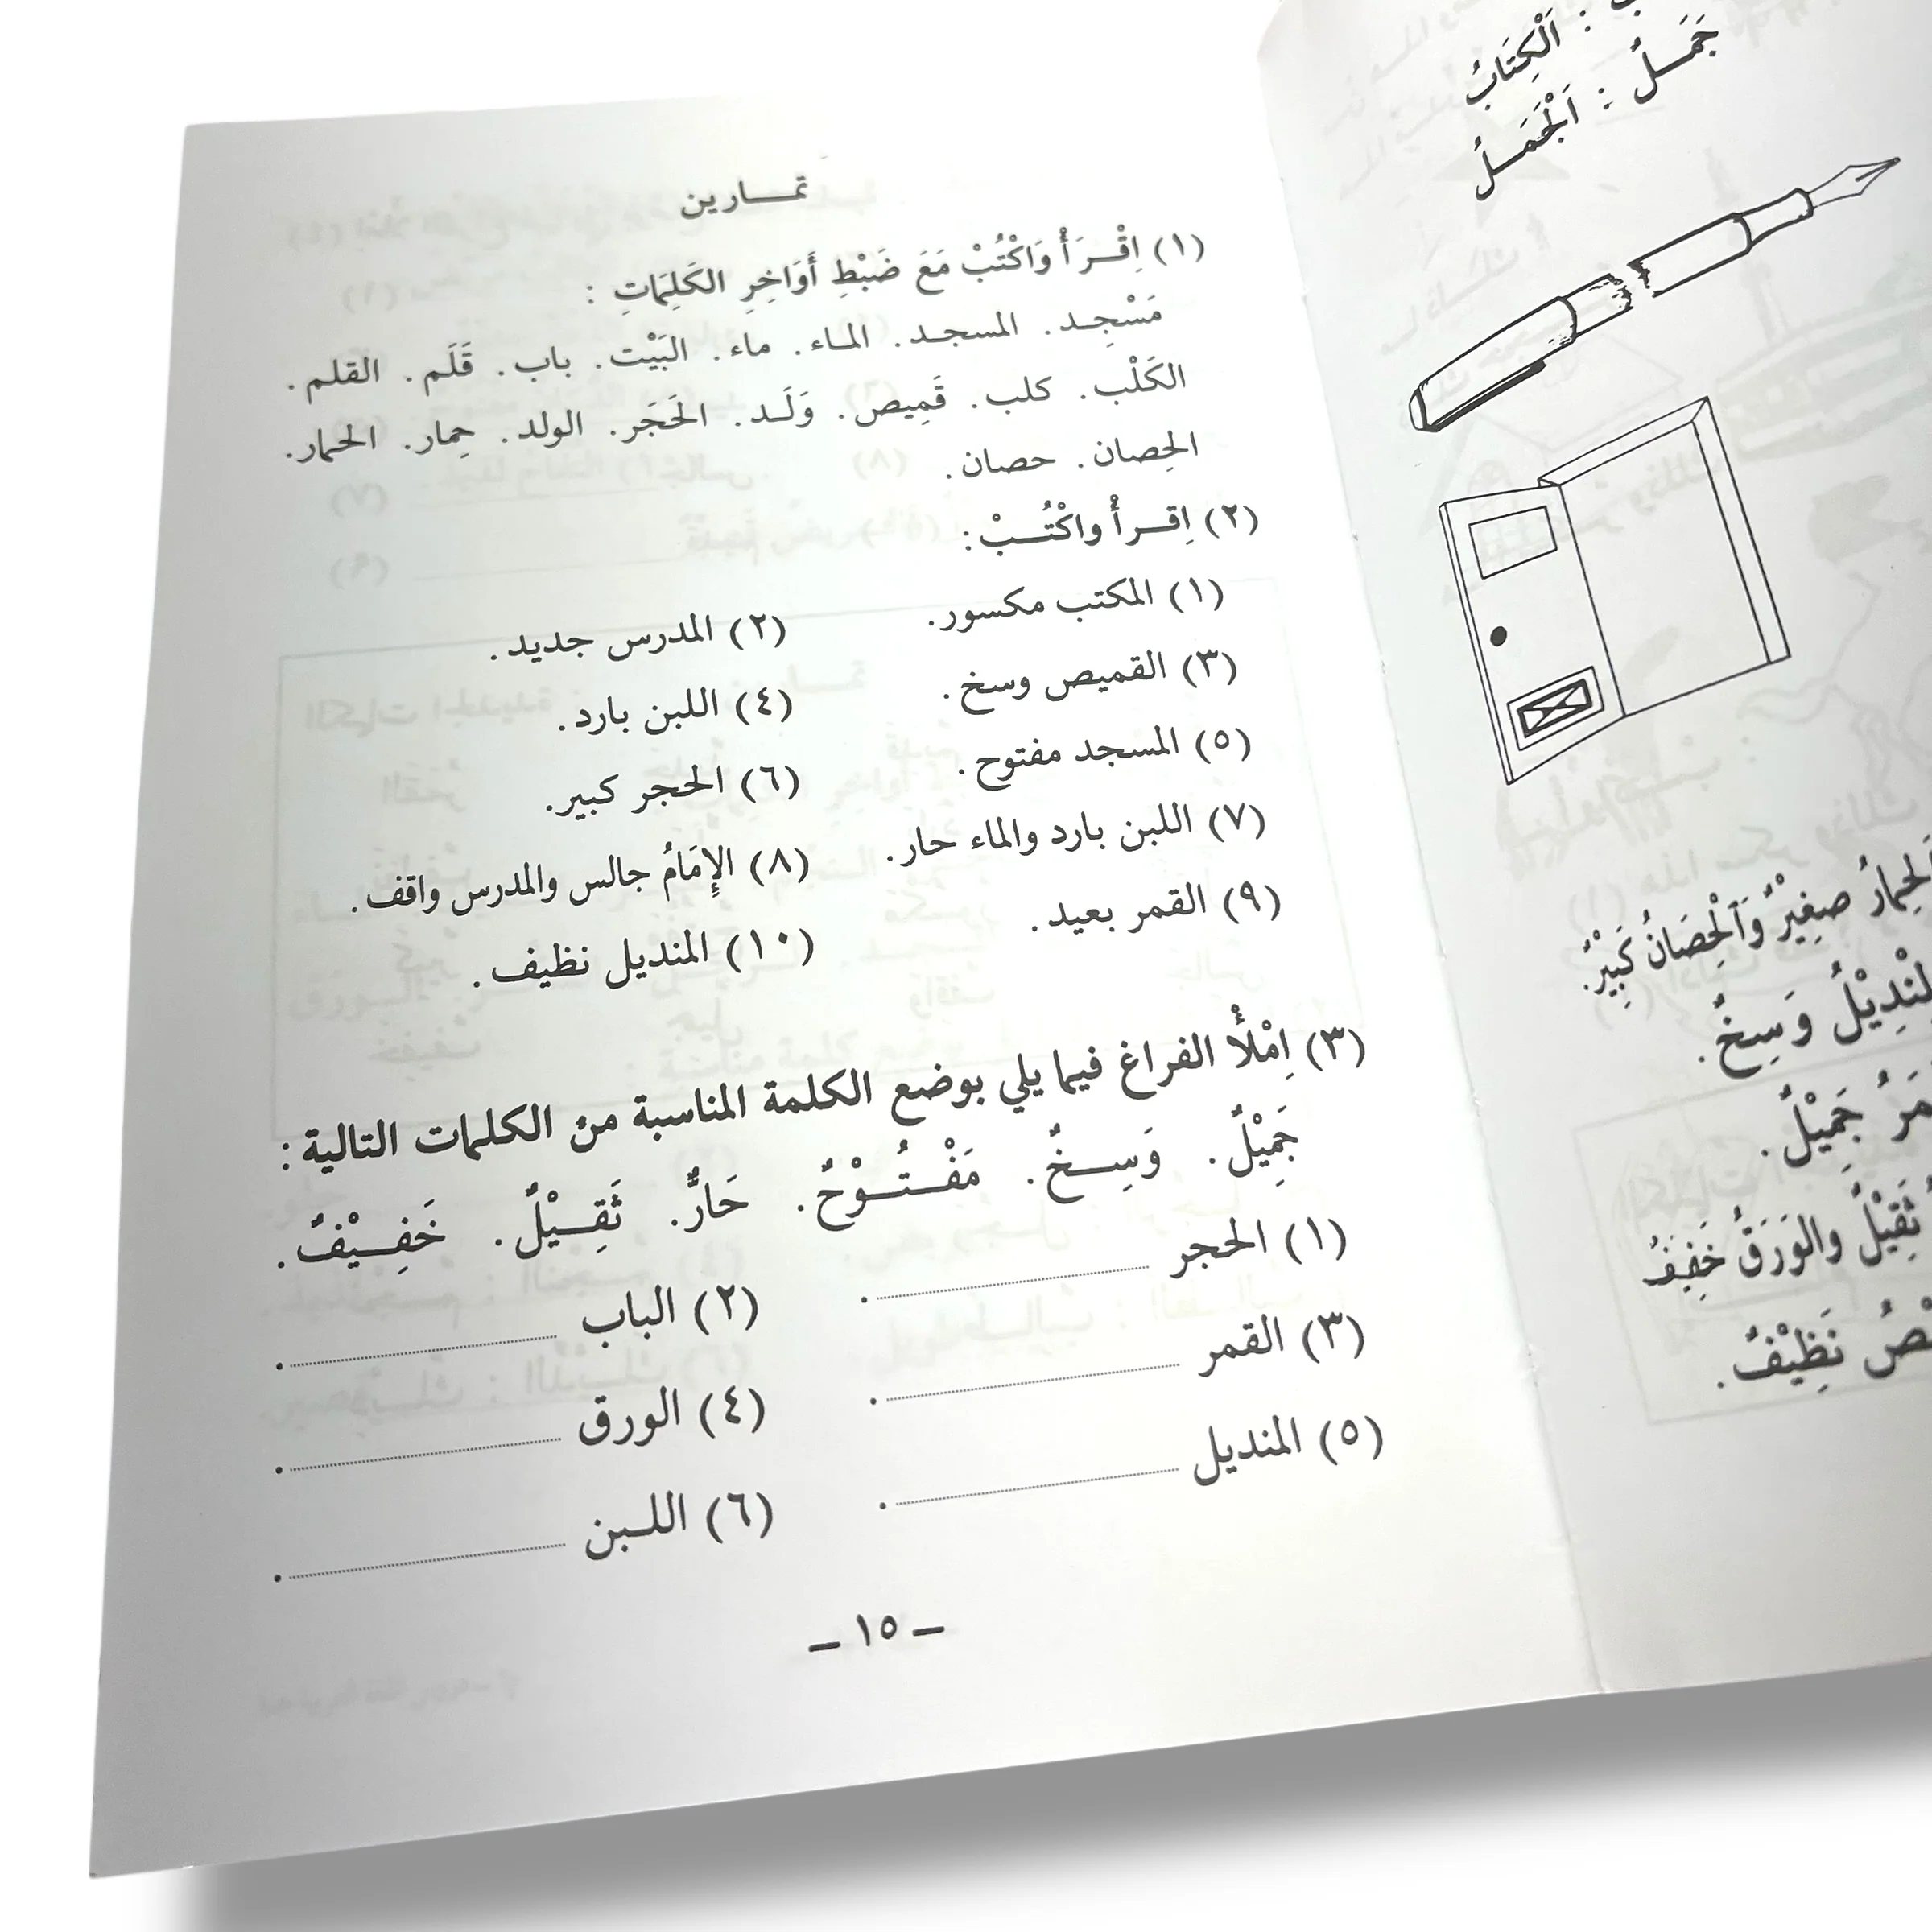 : اَلْكِتَابُ
جَمَـلٌ : اَلْجَمَـلُ
صغِيْرٌ وَاَلْحِصَانُ كَبِيْرٌ.
وَسِخٌ.
جَمِيْلٌ.
ثَقِيْلٌ والوَرَقُ خَفِيفٌ
نَظِيْفٌ.
تمـارين
(١) اِقْـرَأْ وَاكْتُبْ مَعَ ضَبْطِ أَوَاخِرِ الكَلِمَاتِ :
مَسْجِـد. المسجـد. المـاء. ماء. البَيْت. باب. قَلَم. القلم.
الكَلْب. كلب. قَمِيص. وَلَـد. الحَجَر. الولد. حِمار. الحمار.
الحِصان. حصان.
(٢) اِقـرأْ واكْتُـبْ:
(١) المكتب مكسور. (٢) المدرس جديد.
(٣) القميص وسخ. (٤) اللبن بارد.
(٥) المسجد مفتوح. (٦) الحجر كبير.
(٧) اللبن بارد والماء حار. (٨) الإِمَامُ جالس والمدرس واقف.
(٩) القمر بعيد. (١٠) المنديل نظيف.
(٣) اِمْلأْ الفراغ فيما يلي بوضع الكلمة المناسبة من الكلمات التالية :
جَمِيْلٌ. وَسِـخٌ. مَفْـتُـوْحٌ. حَارٌّ. ثَقِـيْلٌ. خَفِـيْفٌ.
(١) الحجر ............ . (٢) الباب ............ .
(٣) القمر ............ . (٤) الورق ............ .
(٥) المنديل ............ . (٦) اللـبن ............ .
ـ ١٥ ـ